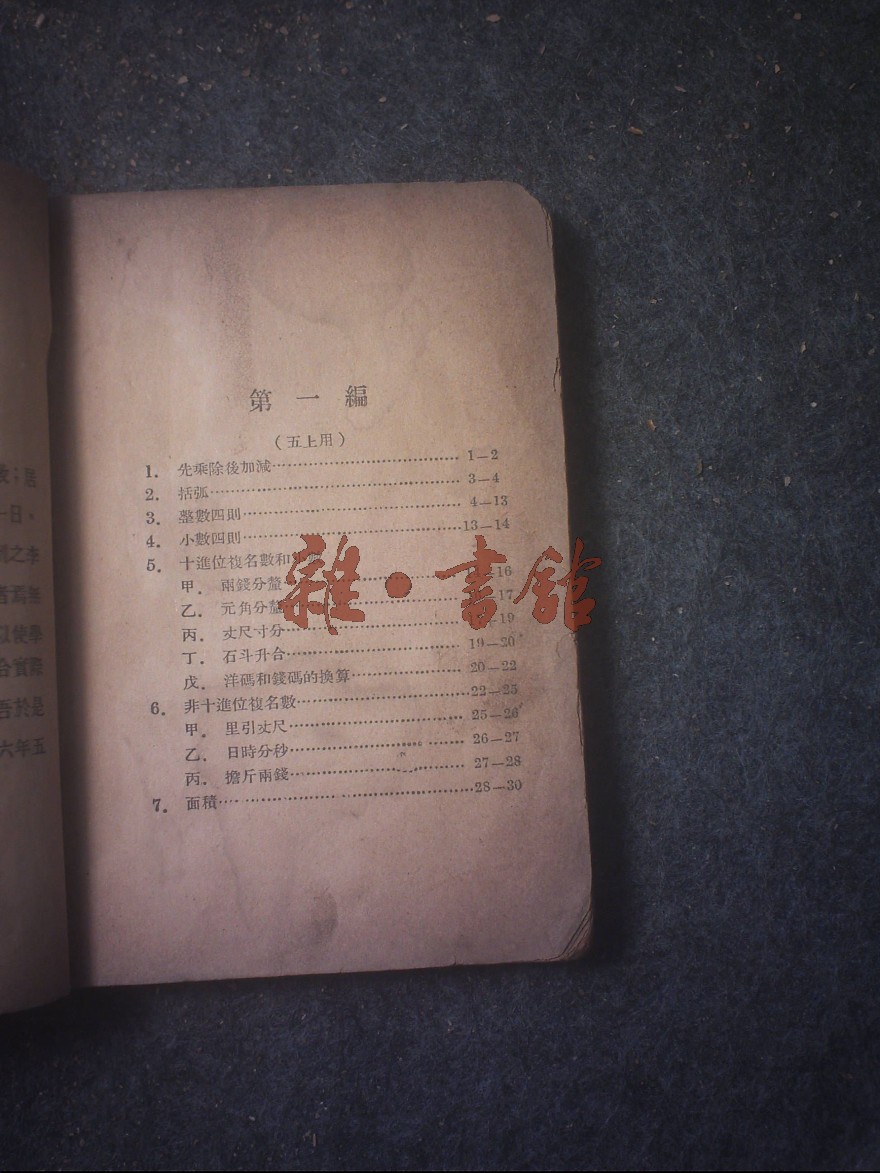 第一編
（五上用）
1. 先乘除後加減 1—2
2. 括弧 3—4
3. 整數四則 4—13
4. 小數四則 13—14
5. 十進位複名數和小數
甲. 兩錢分釐 16
乙. 元角分釐 17
丙. 丈尺寸分 19
丁. 石斗升合 19—20
戊. 洋碼和錢碼的換算 20—22
6. 非十進位複名數 22—25
甲. 里引丈尺 25—26
乙. 日時分秒 26—27
丙. 擔斤兩錢 27—28
7. 面積 28—30
雜·書館
；居
一日，
之李
者焉無
以使學
合實際
吾於是
六年五